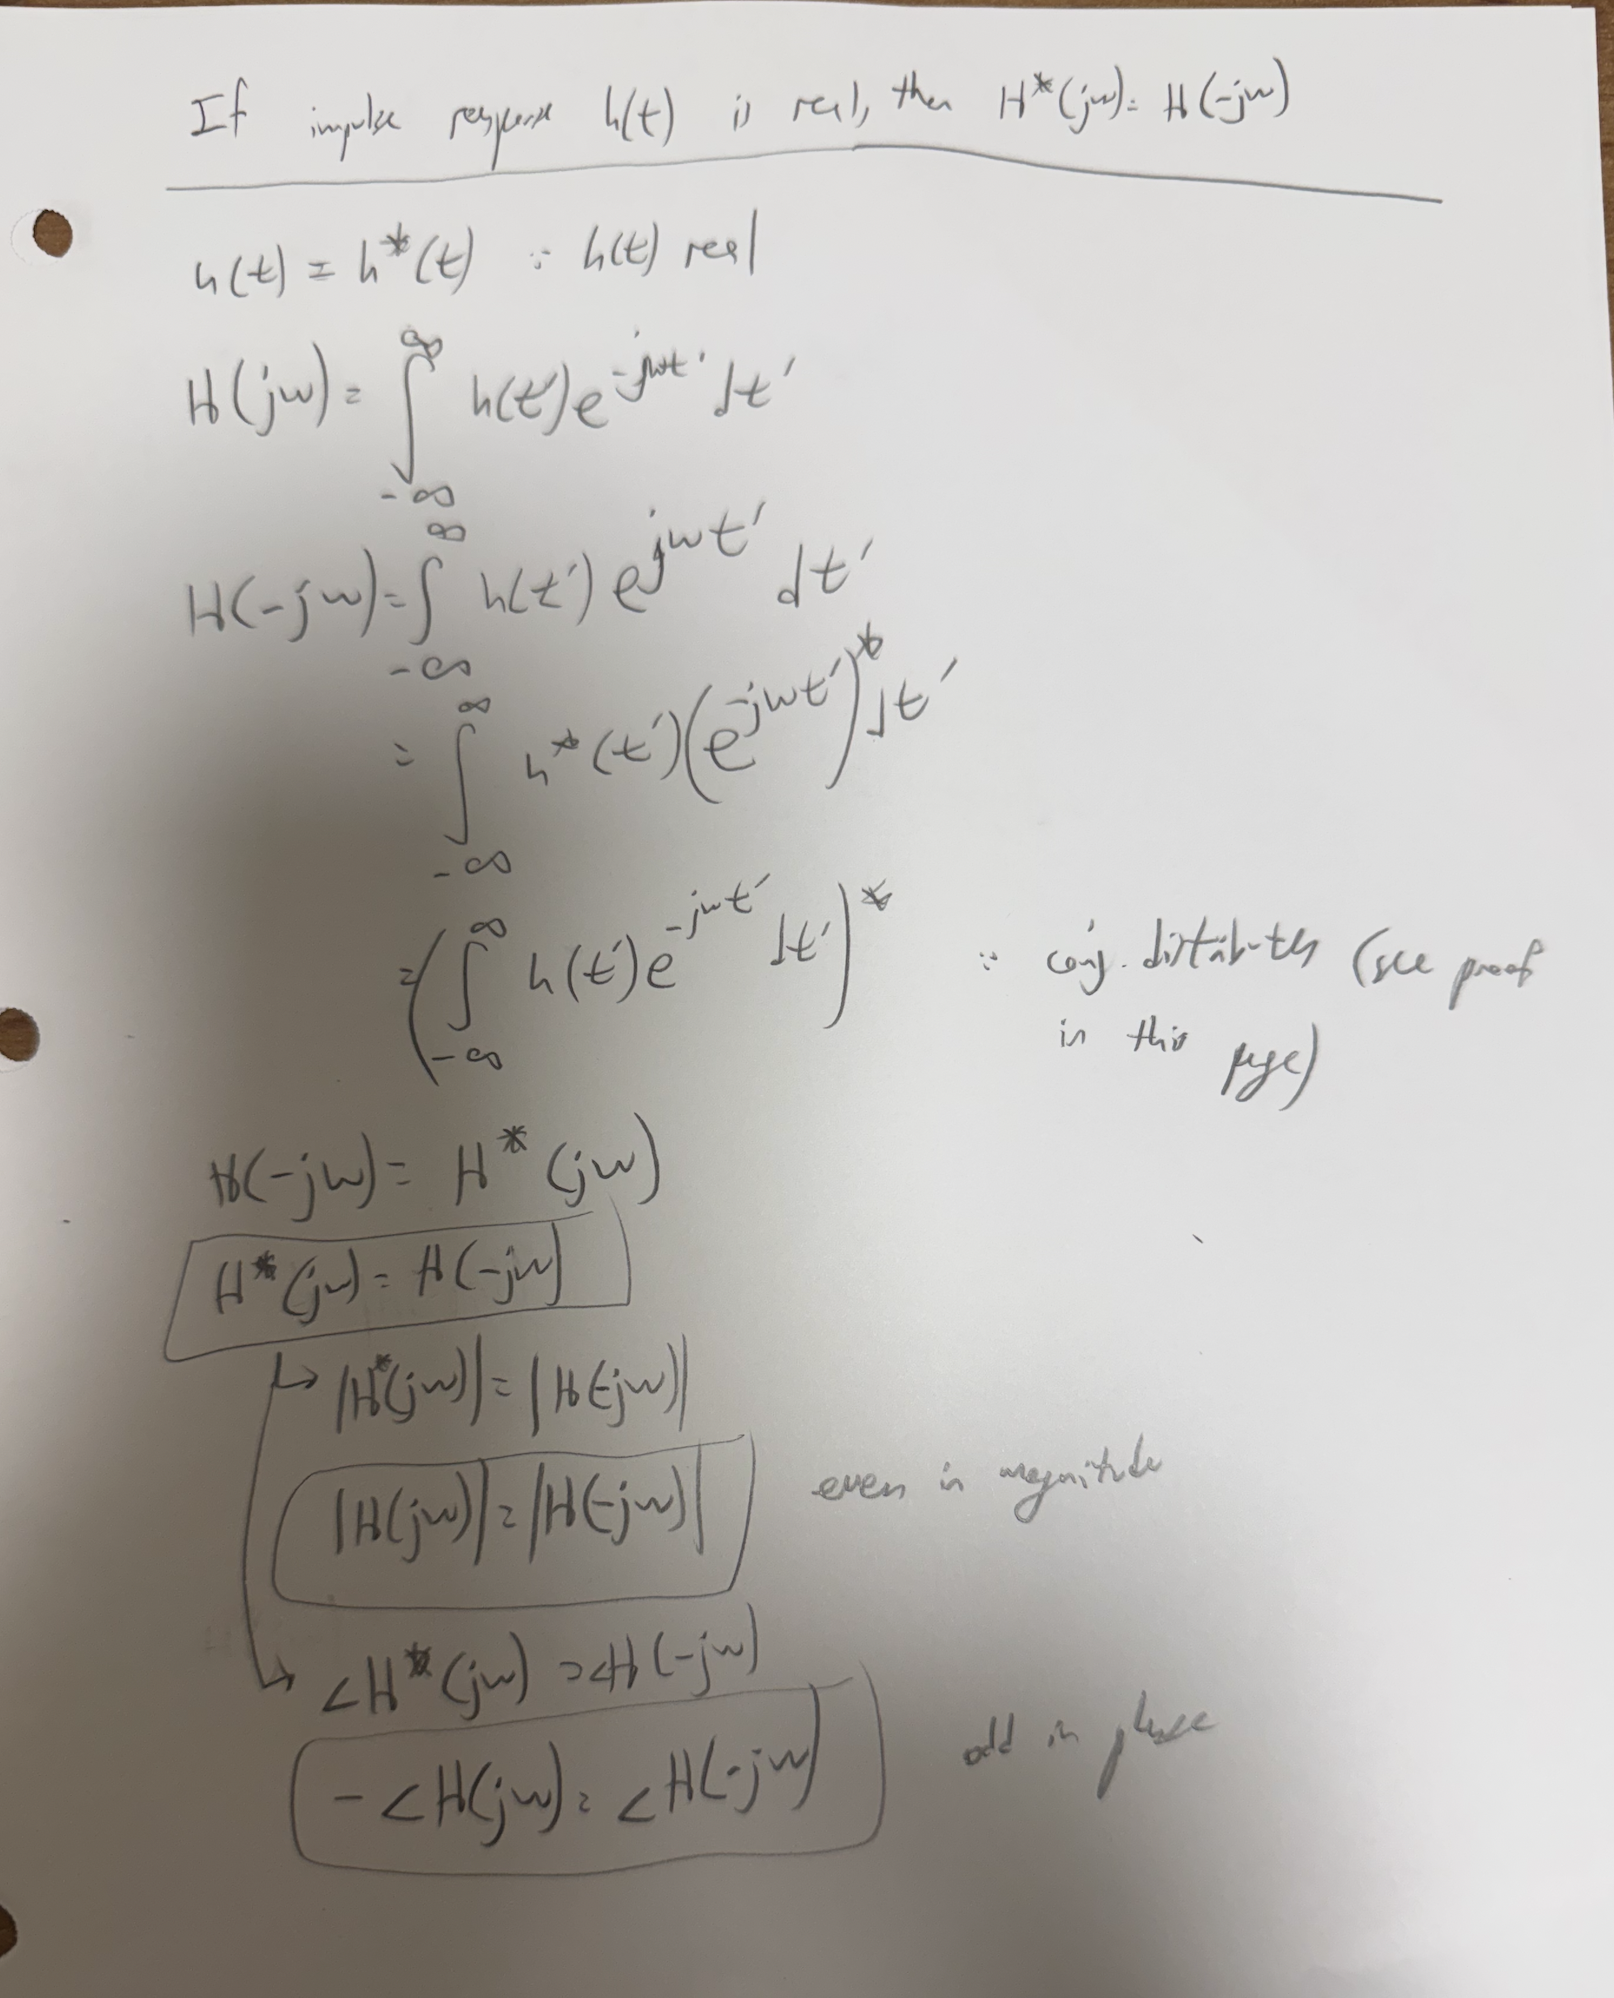 If impulse response h(t) is real, then H*(jw) = H(-jw)
h(t) = h*(t) ∵ h(t) real
H(jw) = ∫_{-∞}^{∞} h(t')e^{-jwt'} dt'
H(-jw) = ∫_{-∞}^{∞} h(t') e^{jwt'} dt'
= ∫_{-∞}^{∞} h*(t')(e^{-jwt'})* dt'
= (∫_{-∞}^{∞} h(t')e^{-jwt'} dt')* ∵ conj. distributes (see proof
in this page)
H(-jw) = H*(jw)
H*(jw) = H(-jw)
↳ |H*(jw)| = |H(-jw)|
|H(jw)| = |H(-jw)| even in magnitude
↳ ∠H*(jw) = ∠H(-jw)
-∠H(jw) = ∠H(-jw) odd in phase